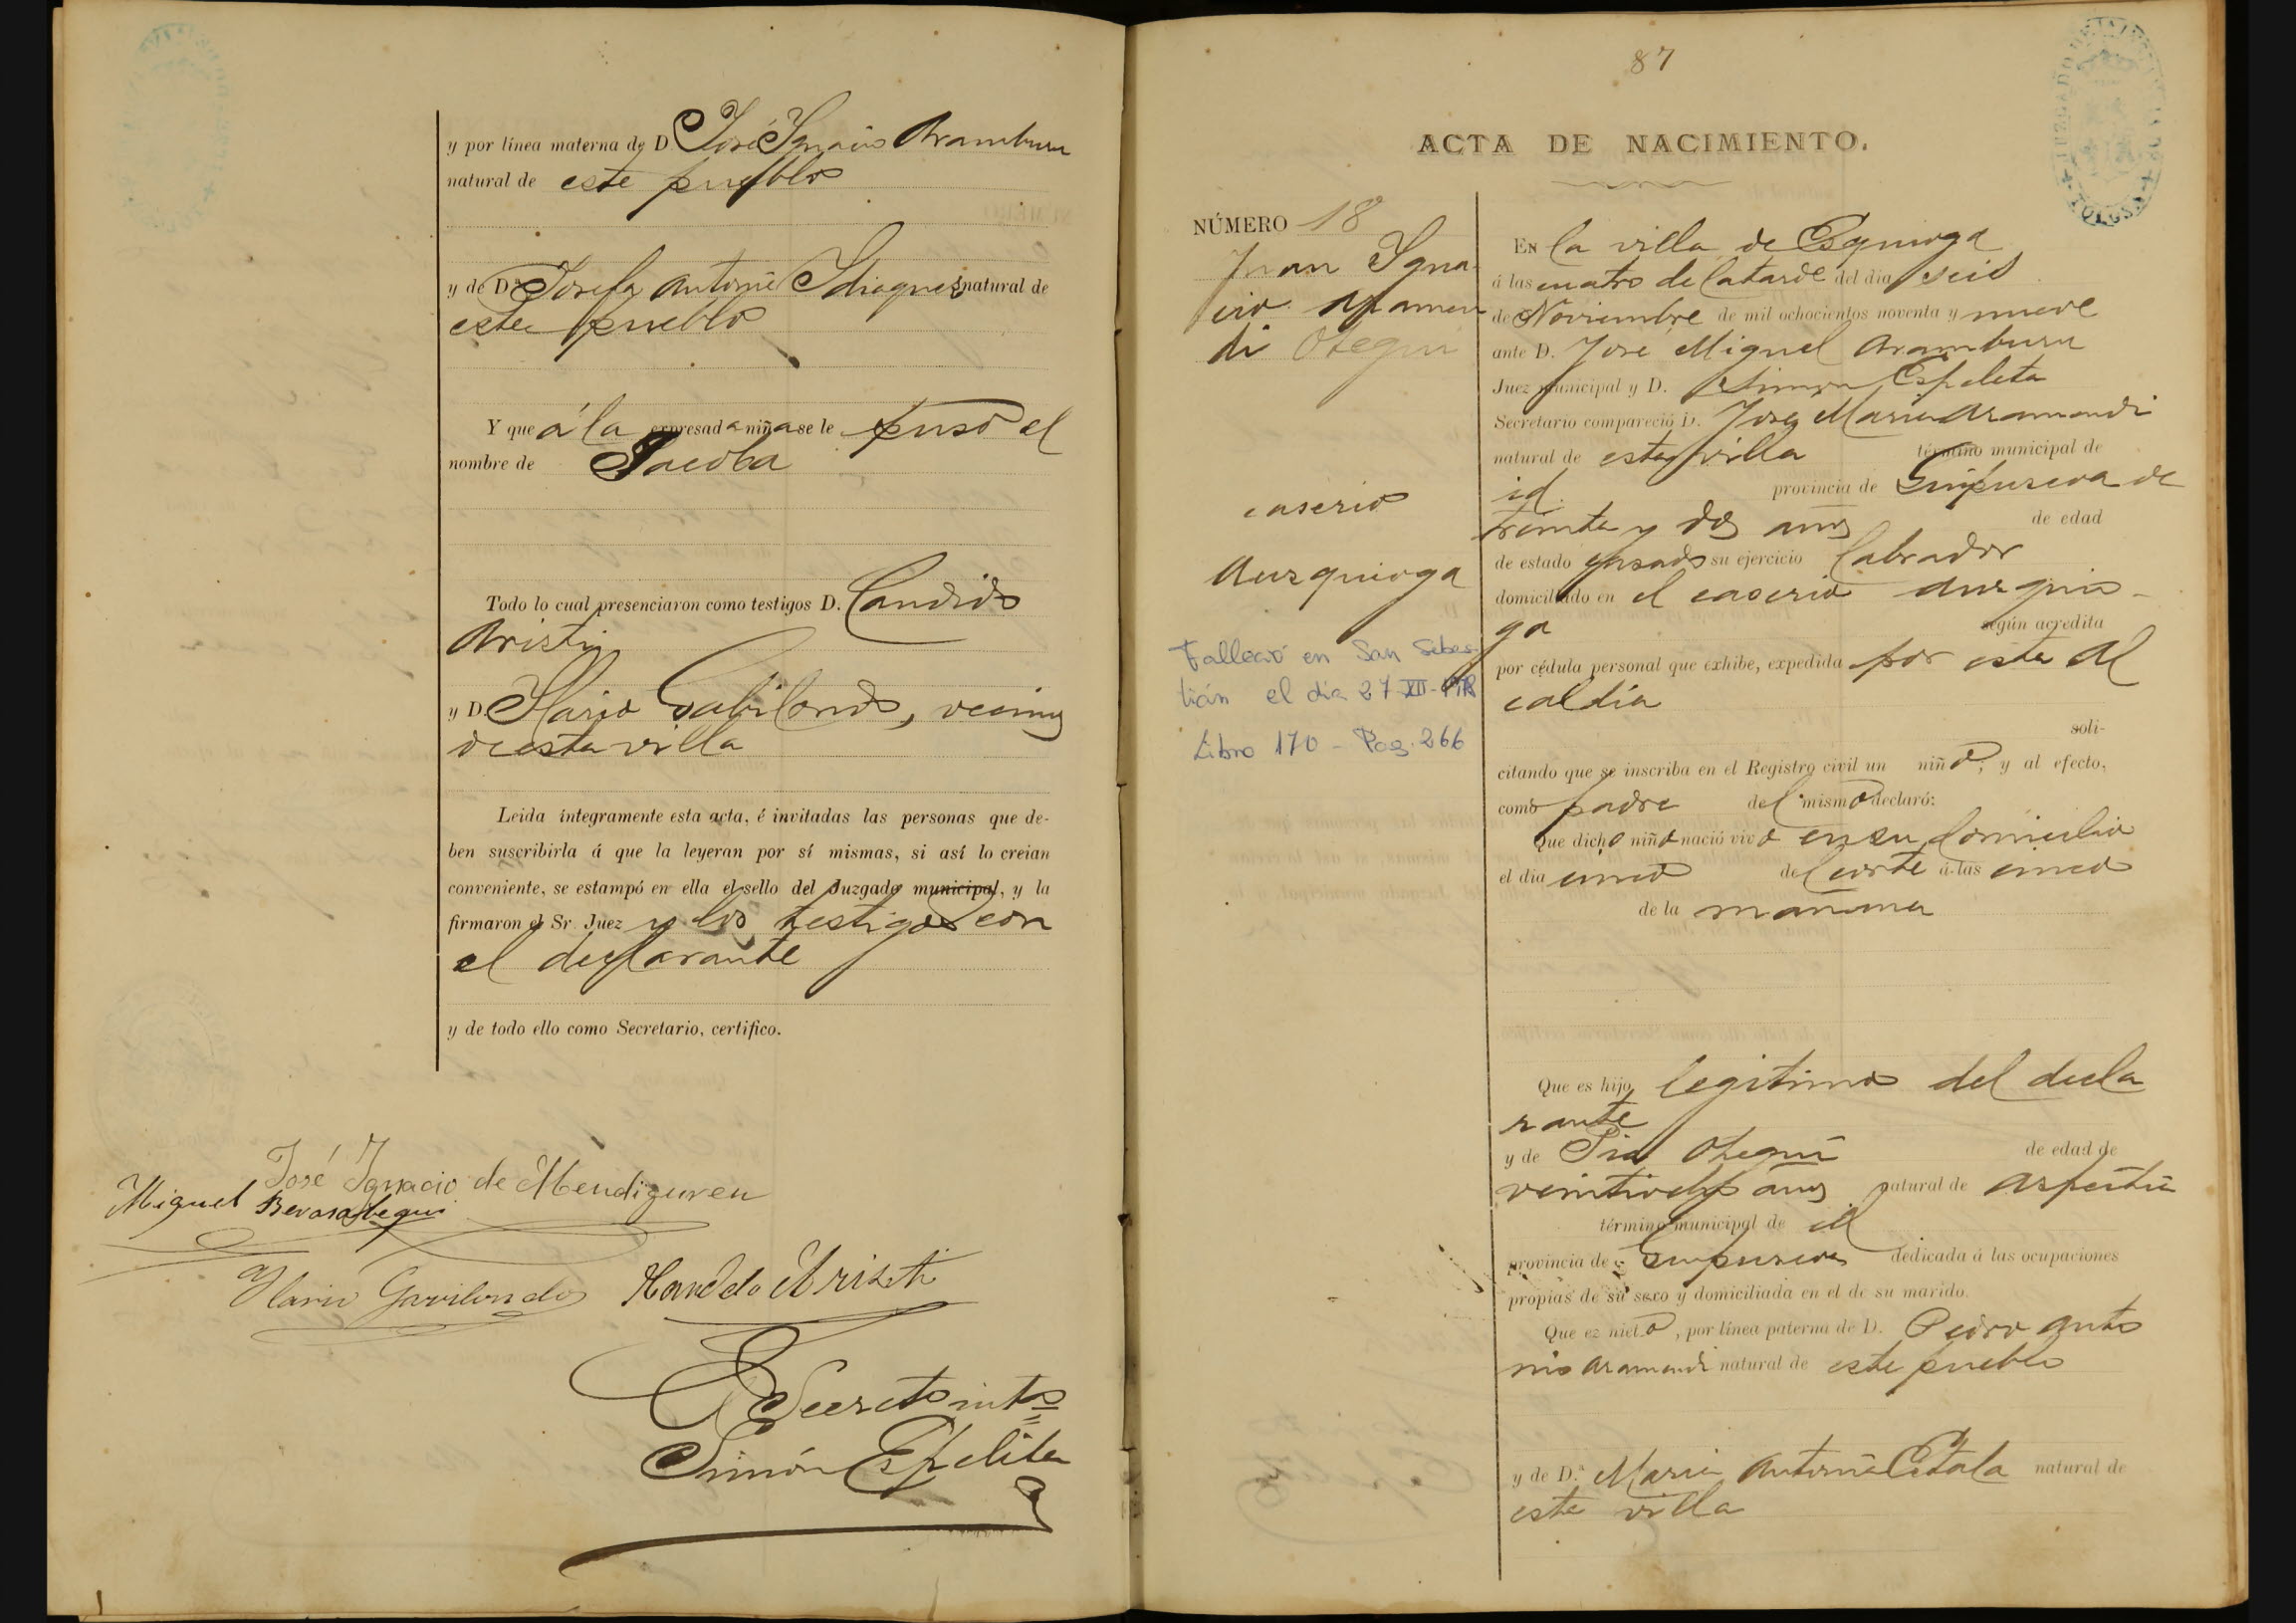 y por línea materna de D. José Ignacio Aramburu
natural de este pueblo
y de D.ª Josefa Antonia Idiaquez natural de
este pueblo
Y que á la expresada niña se le puso el
nombre de Jacoba
Todo lo cual presenciaron como testigos D. Candido
Aristi
y D. Ilario Gabilondo, vecinos
de esta villa
Leida íntegramente esta acta, é invitadas las personas que de-
ben suscribirla á que la leyeran por sí mismas, si así lo creian
conveniente, se estampó en ella el sello del Juzgado municipal, y la
firmaron el Sr. Juez y los testigos con
el declarante
y de todo ello como Secretario, certifico.
José Ignacio de Mendiguren
Miguel Berasategui
Ilario Gavilondo
Candido Aristi
El Secreto into
Simón Espeleta
87
JUZGADO MUNICIPAL
TOLOSA
ACTA DE NACIMIENTO.
NÚMERO 18
Juan Igna
cio Aramen
di Otegui
caserio
Aurquioga
Falleció en San Sebas-
tián el día 27-XII-
Libro 170 - Pag. 266
EN la villa de Esquioga
á las cuatro de la tarde del dia seis
de Noviembre de mil ochocientos noventa y nueve
ante D. José Miguel Aramburu
Juez municipal y D. Simon Espeleta
Secretario compareció D. José Maria Aramendi
natural de esta villa término municipal de
id. provincia de Guipuscoa de
treinta y dos años de edad
de estado casado su ejercicio labrador
domiciliado en el caserio Aurquio-
ga según acredita
por cédula personal que exhibe, expedida por esta Al
caldía
soli-
citando que se inscriba en el Registro civil un niño; y al efecto,
como padre del mismo declaró:
Que dicho niño nació vivo en su domicilio
el dia cinco del corte á las cinco
de la mañana
Que es hijo legitimo del decla
rante
y de Pia Otegui de edad de
veintiocho años natural de Aspeitia
término municipal de id
provincia de Guipuscoa dedicada á las ocupaciones
propias de su sexo y domiciliada en el de su marido.
Que ez nieto, por línea paterna de D. Pedro Anto
nio Aramendi natural de este pueblo
y de D.ª Maria Antonia Catala natural de
esta villa